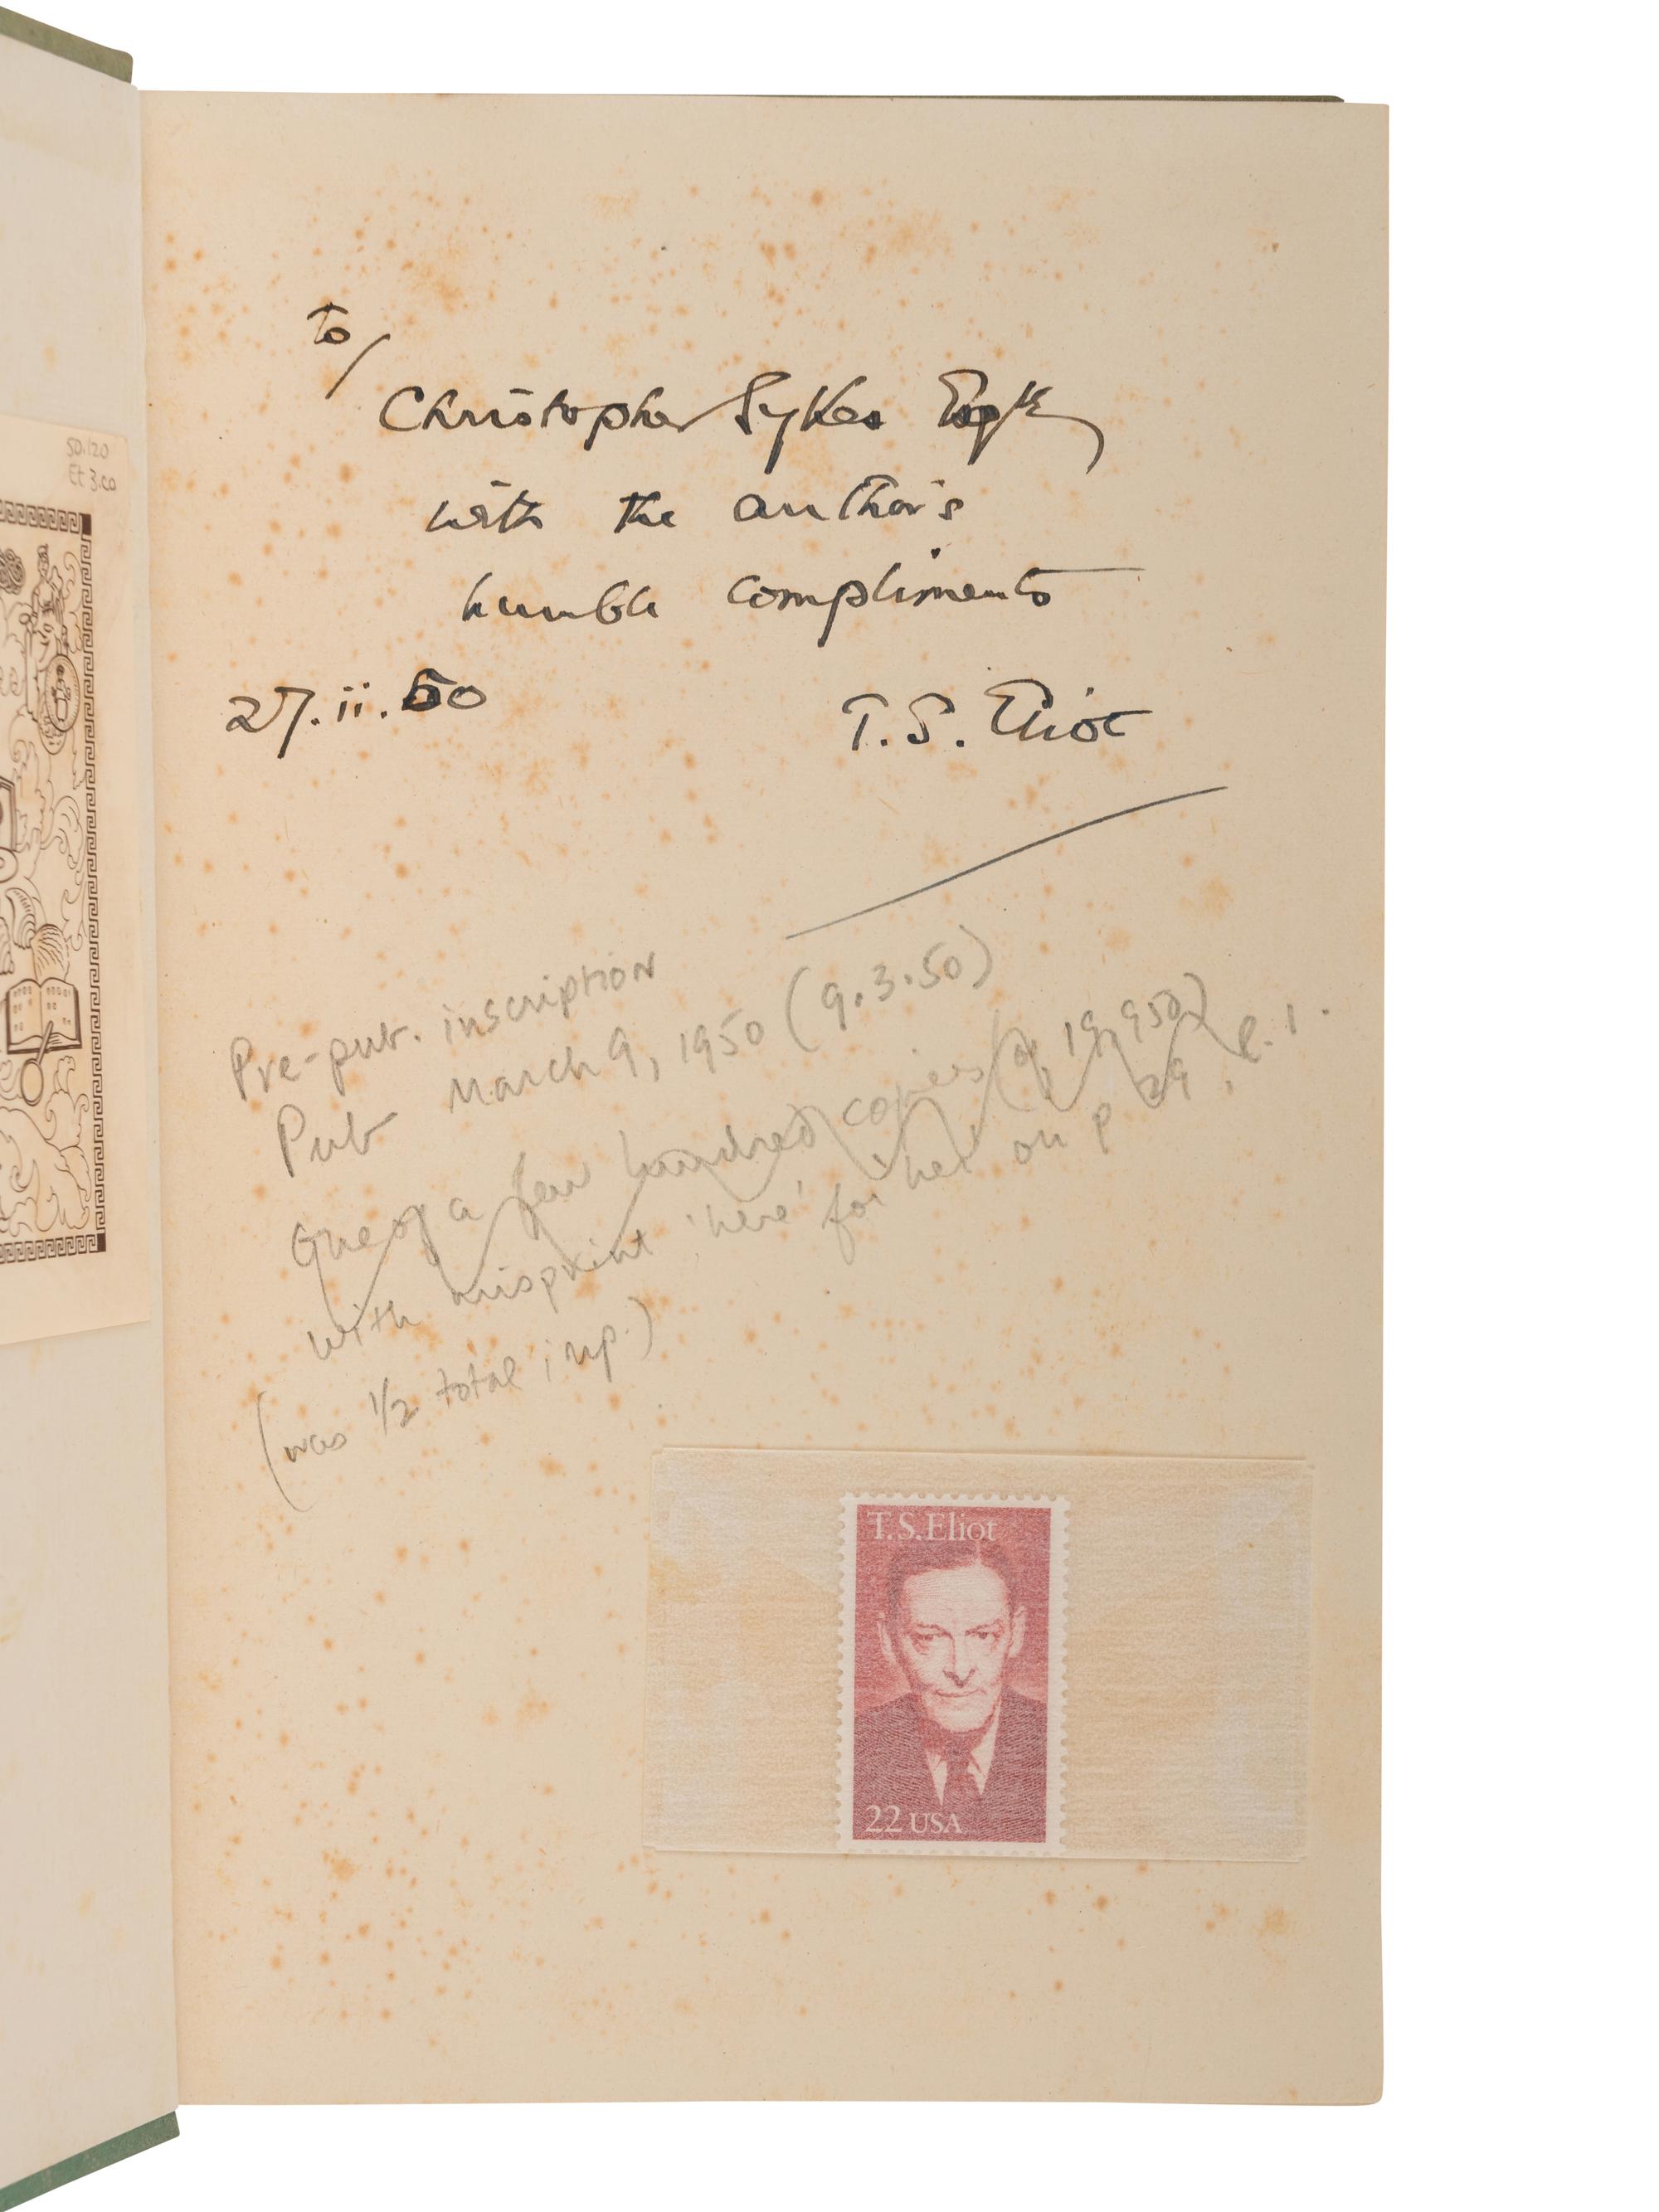 50.120
Et 3.co
to/
Christopher Sykes Esqre
with the author's
humble compliments
27.ii.50
T. S. Eliot
Pre-pub. inscription
Pub March 9, 1950 (9.3.50)
One of a few hundred copies (of 19,950)
with misprint 'here' for her on p 29, l. 1.
(was 1/2 total imp.)
T.S.Eliot
22 USA